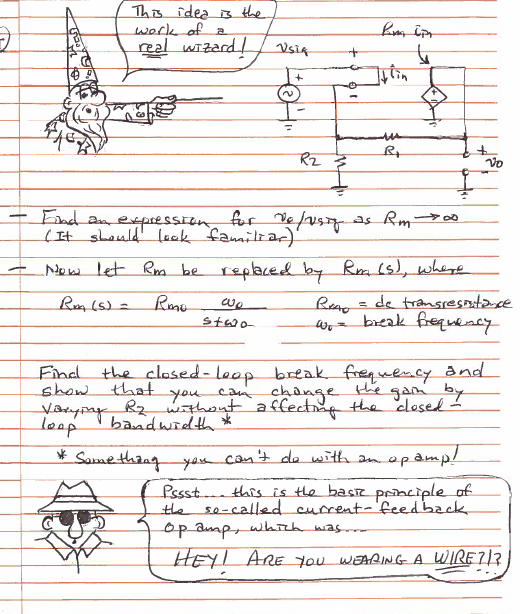 This idea is the
work of a
real wizard!
vsig
Rm iin
+
+
-
iin
-
+
-
R2
R1
+
vo
-
— Find an expression for vo/vsig as Rm → ∞
(It should look familiar)
— Now let Rm be replaced by Rm(s), where
Rm(s) = Rmo ωo / s+ωo
Rmo = dc transresistance
ωo = break frequency
Find the closed-loop break frequency and
show that you can change the gain by
varying R2 without affecting the closed-
loop bandwidth *
* Something you can't do with an op amp!
Pssst... this is the basic principle of
the so-called current-feedback
op amp, which was...
HEY! ARE YOU WEARING A WIRE?!?